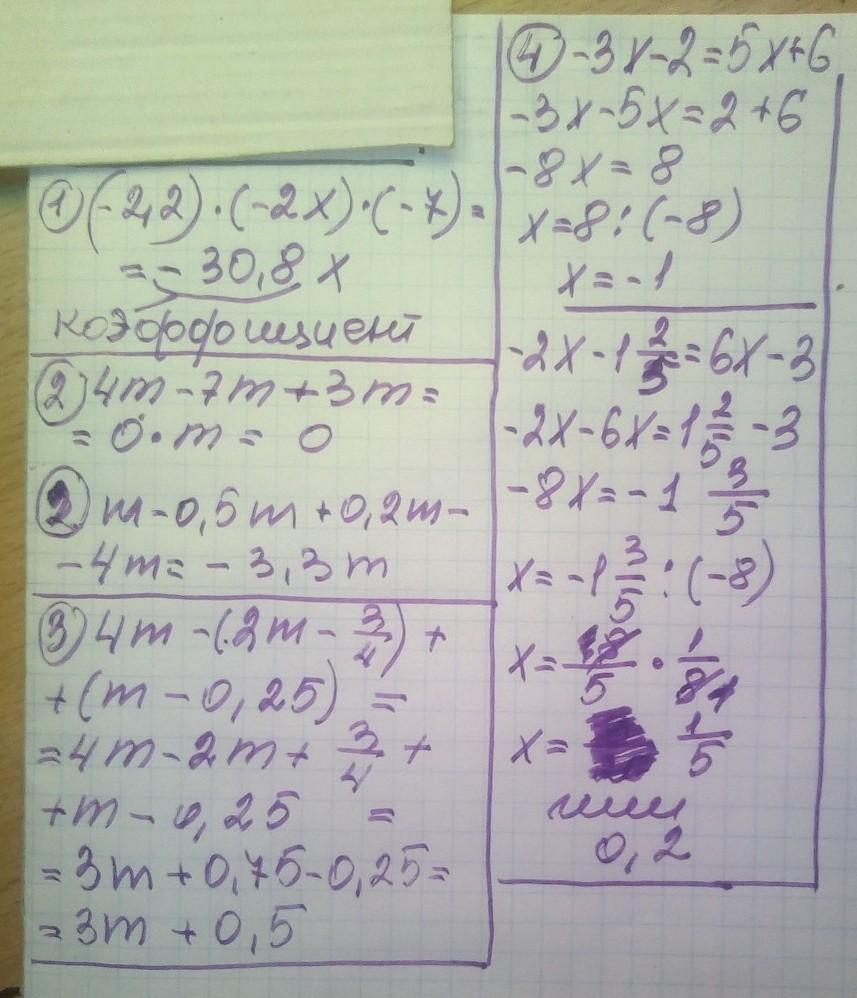 ① (-2,2)·(-2x)·(-7)=
=-30,8x
коэффициент
② 4m-7m+3m=
=0·m=0
② m-0,5m+0,2m-
-4m=-3,3m
③ 4m-(2m-3/4)+
+(m-0,25)=
=4m-2m+3/4+
+m-0,25=
=3m+0,75-0,25=
=3m+0,5
④ -3x-2=5x+6
-3x-5x=2+6
-8x=8
x=8:(-8)
x=-1
-2x-1 2/5=6x-3
-2x-6x=1 2/5-3
-8x=-1 3/5
x=-1 3/5:(-8)
x=8/5·1/8 1
x=1/5
или
0,2